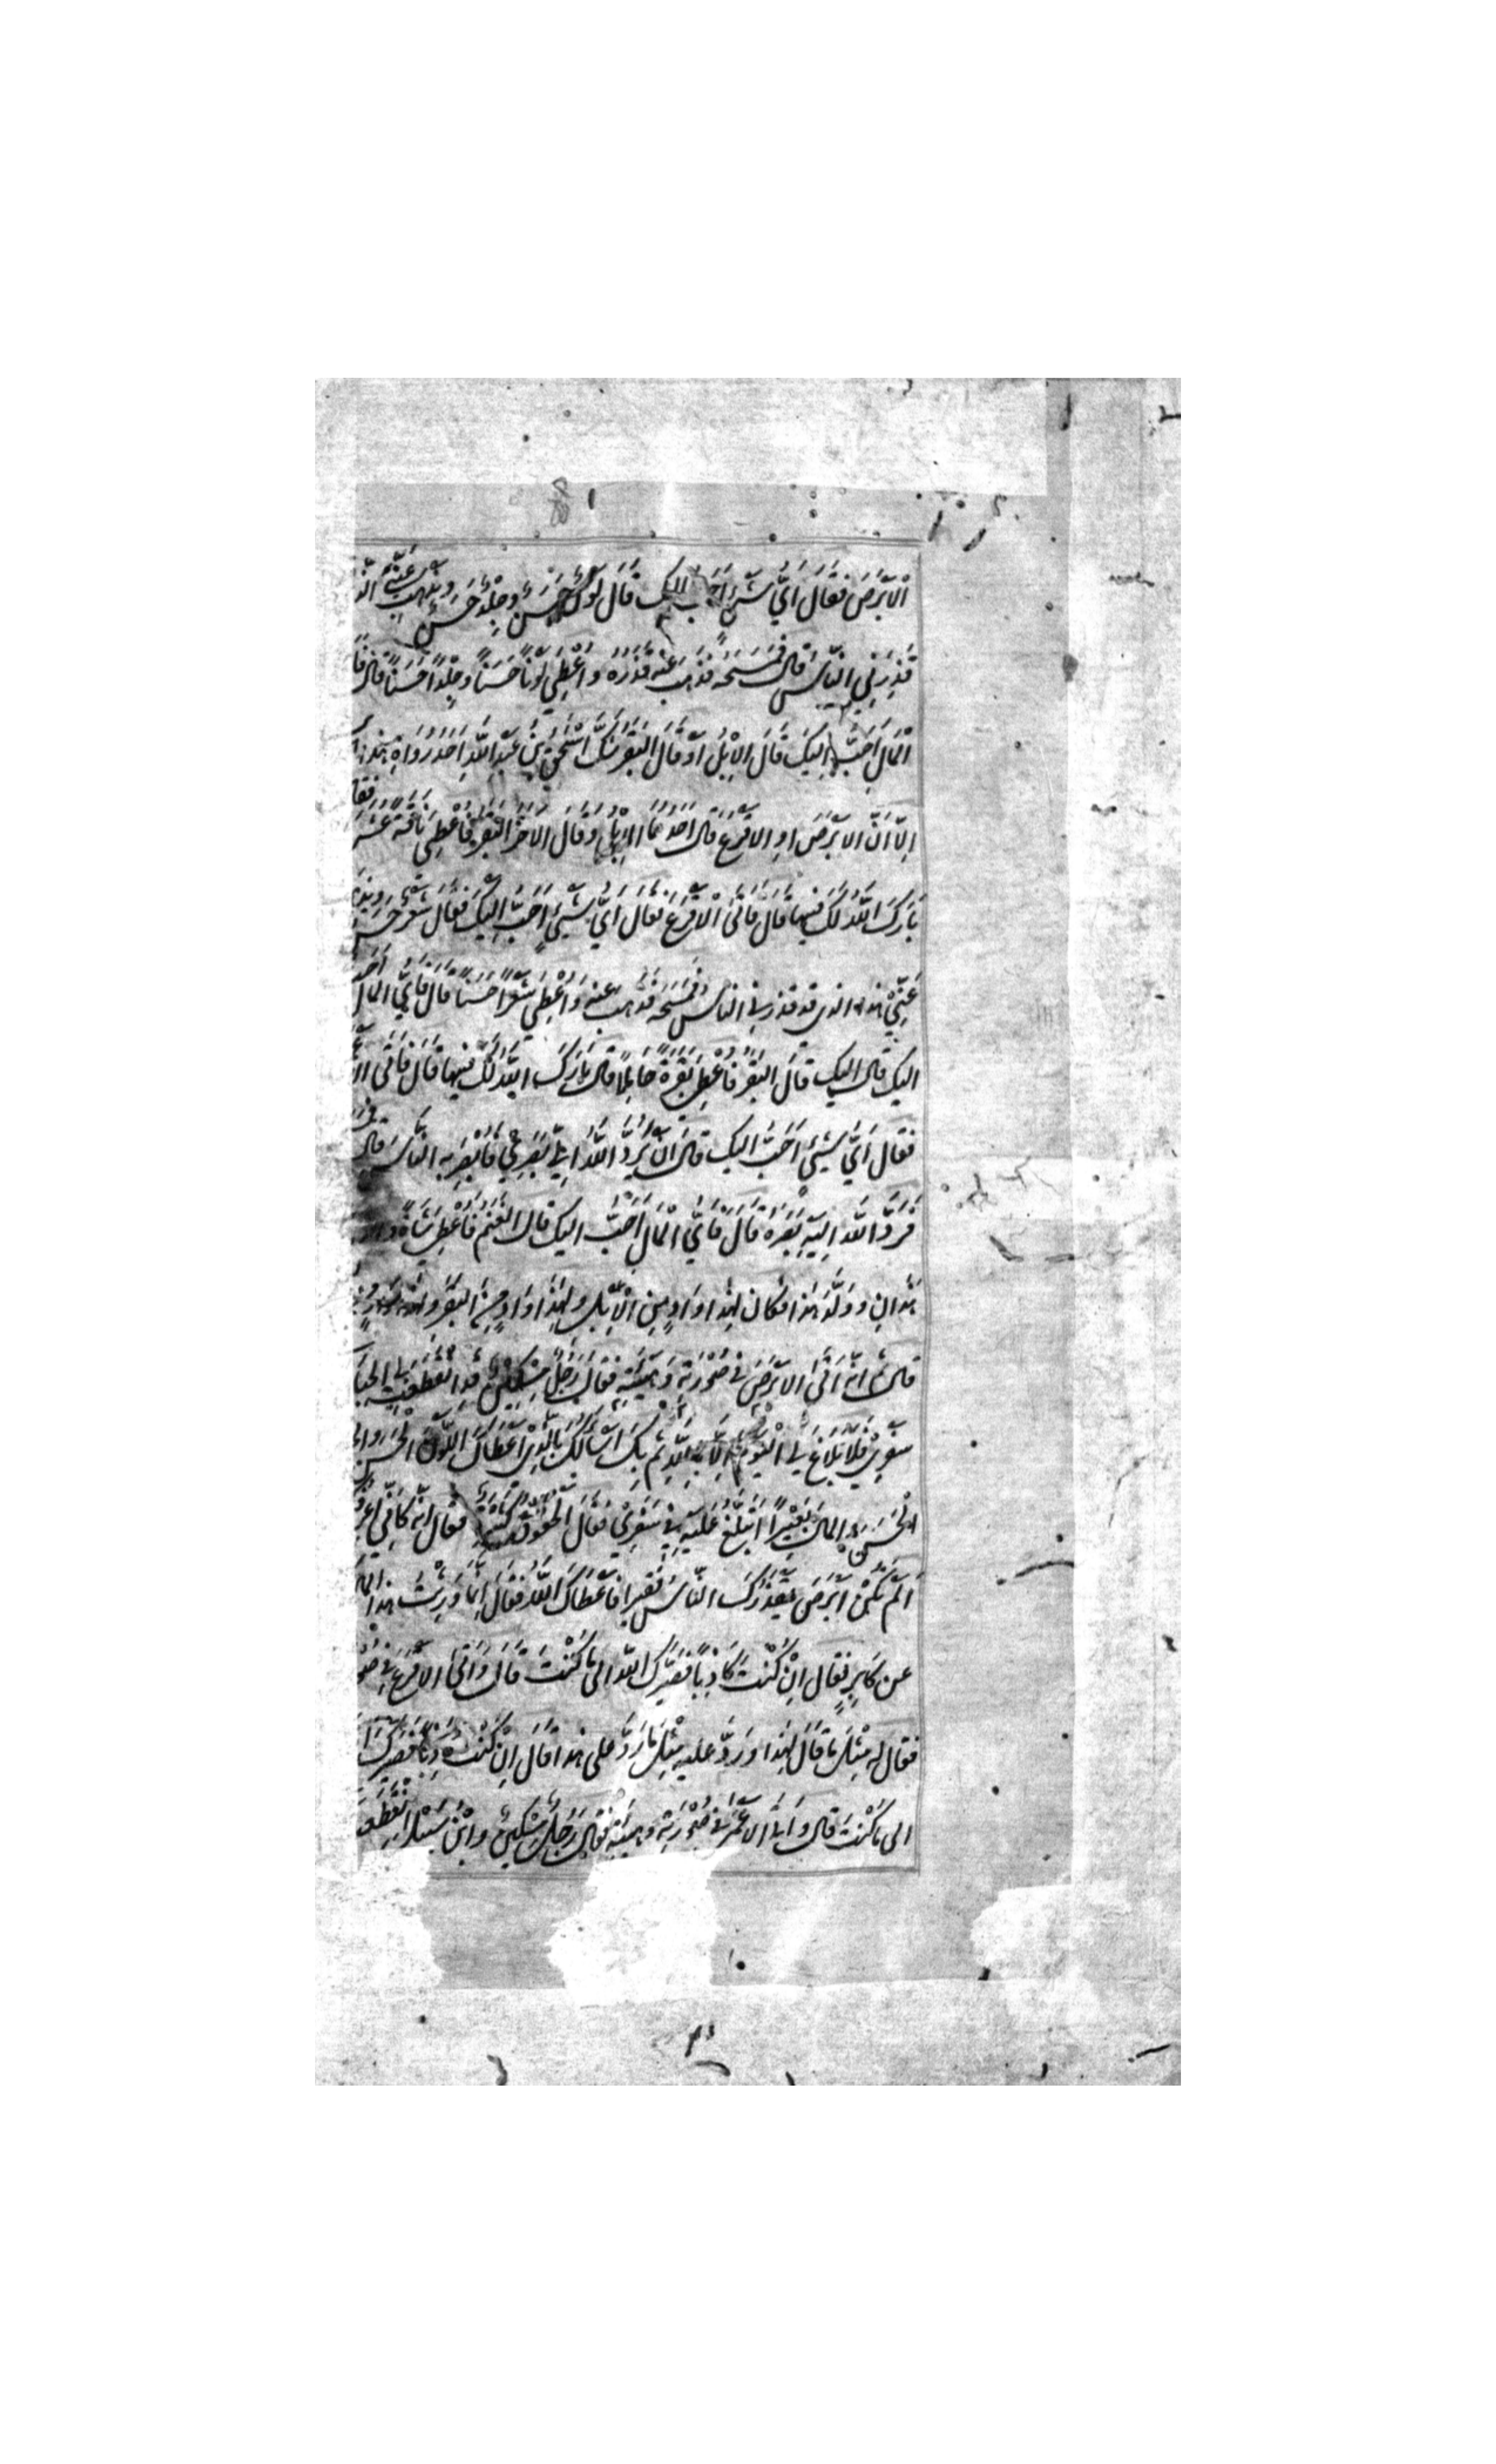 الْاَبْرَصَ فَقَالَ اَيُّ شَيْءٍ اَحَبُّ اليك قَالَ لَوْنٌ حَسَنٌ وجِلْدٌ حَسَنٌ ويذهب عَنِّي الّذ
قَذِرَنِي النَّاسُ قال فَمَسَحَهُ فذهب عَنْهُ قَذَرُهُ واُعْطِيَ لَوْنًا حَسَنًا وجِلْدًا حَسَنًا قال فَا
الْمَالِ اَحَبُّ اِلَيكَ قَالَ الِابِلُ اَوْ قَالَ الْبَقَرُ شَكَّ اسْحٰقُ بْنُ عَبْدِ اللّٰهِ اَحَدُ رُوَاةِ هذا
اِلّا اَنَّ الْابْرَصَ اوِ الاقْرَعَ قال اَحَدُهُمَا الاِبِلُ وَقَالَ الاخَرُ الْبَقَرُ فَاُعْطِيَ نَاقَةً عُشَرَ
فقا
بَارَكَ اللّٰهُ لَكَ فيها قَالَ فَاَتَى الْاَقْرَعَ فَقَالَ اَيُّ شَيْءٍ اَحَبُّ اِلَيْكَ فقال شَعْرٌ حَسَنٌ ويذ
عَنِّيْ هذا الذى قد قذرنى الناس فَمَسَحَهُ فَذَهَبَ عنه وَاُعْطِيَ شَعْرًا حَسَنًا قَالَ فَايُّ الْمَالِ اَحَ
اليك قال اليك قال الْبَقَرُ فَاُعْطِيَ بَقَرَةً حَامِلًا قال بَارَكَ اللّٰهُ لَكَ فيها قَالَ فَاَتَى الْا
فقال اَيُّ شَيْءٍ اَحَبُّ اليك قال اَنْ يَرُدَّ اللّٰهُ اِلَيَّ بَصَرِيْ فَاُبْصِرَ به النّاسَ قال
فَرَدَّ اللّٰه اِلَيْهِ بَصَرَهُ قَالَ فَاَيُّ الْمَالِ اَحَبُّ اليك قال الغنم فَاُعْطِيَ شَاةً والد
هٰذانِ وولَّدَ هٰذا فكان لِهٰذا وَادٍ مِنَ الْاِبِلِ ولِهٰذَا وَادٍ مِنَ البَقَرِ ولهذا وادٍ
قال ثُمَّ انّه اَتَى الابْرَصَ فى صُوْرَتِهِ وَهَيْئَتِهِ فقال رَجُلٌ مِسْكِيْنٌ قدِ انْقَطَعَتْ بِيَ الحِبَا
سَفَرِيْ فَلَا بَلَاغَ لِيَ الْيَوْمَ اِلَّا بِاللّٰهِ ثُمَّ بِكَ اَسْاَلُكَ بالَّذِيْ اَعْطَاكَ اللَّوْنَ الْحَسَنَ والجِ
الْحَسَنَ والمالَ بَعِيْرًا اَتَبَلَّغُ عَلَيْهِ فِي سَفَرِيْ فَقَالَ الْحُقُوْقُ كَثِيْرَةٌ فقال انّه كَاَنِّي اَعْرِفُ
اَلَمْ تَكُنْ اَبْرَصَ يَقْذَرُكَ النَّاسُ فقيرا فَاَعْطَاكَ اللّٰهُ فَقَالَ اِنَّمَا وَرِثْتُ هذا الما
عن كَابِرٍ فقال اِنْ كُنْتَ كَاذِبًا فَصَيَّرَكَ اللّٰه الى مَا كُنْتَ قَالَ وَاَتَى الاَقْرَعَ فِي صُو
فقال له مِثْلَ مَا قَالَ لِهٰذا ورَدَّ عليه مِثْلَ مَا رَدَّ على هذا قَالَ اِنْ كُنْتَ كَاذِبًا فَصَيَّرَكَ ا
الى مَا كُنْتَ قال وَاَتَى الْاَعْمٰى فِي صُوْرَتِهِ وهيئتهِ فقال رَجُلٌ مِسْكِيْنٌ وابْنُ سَبِيْلٍ انْقَطَعَ